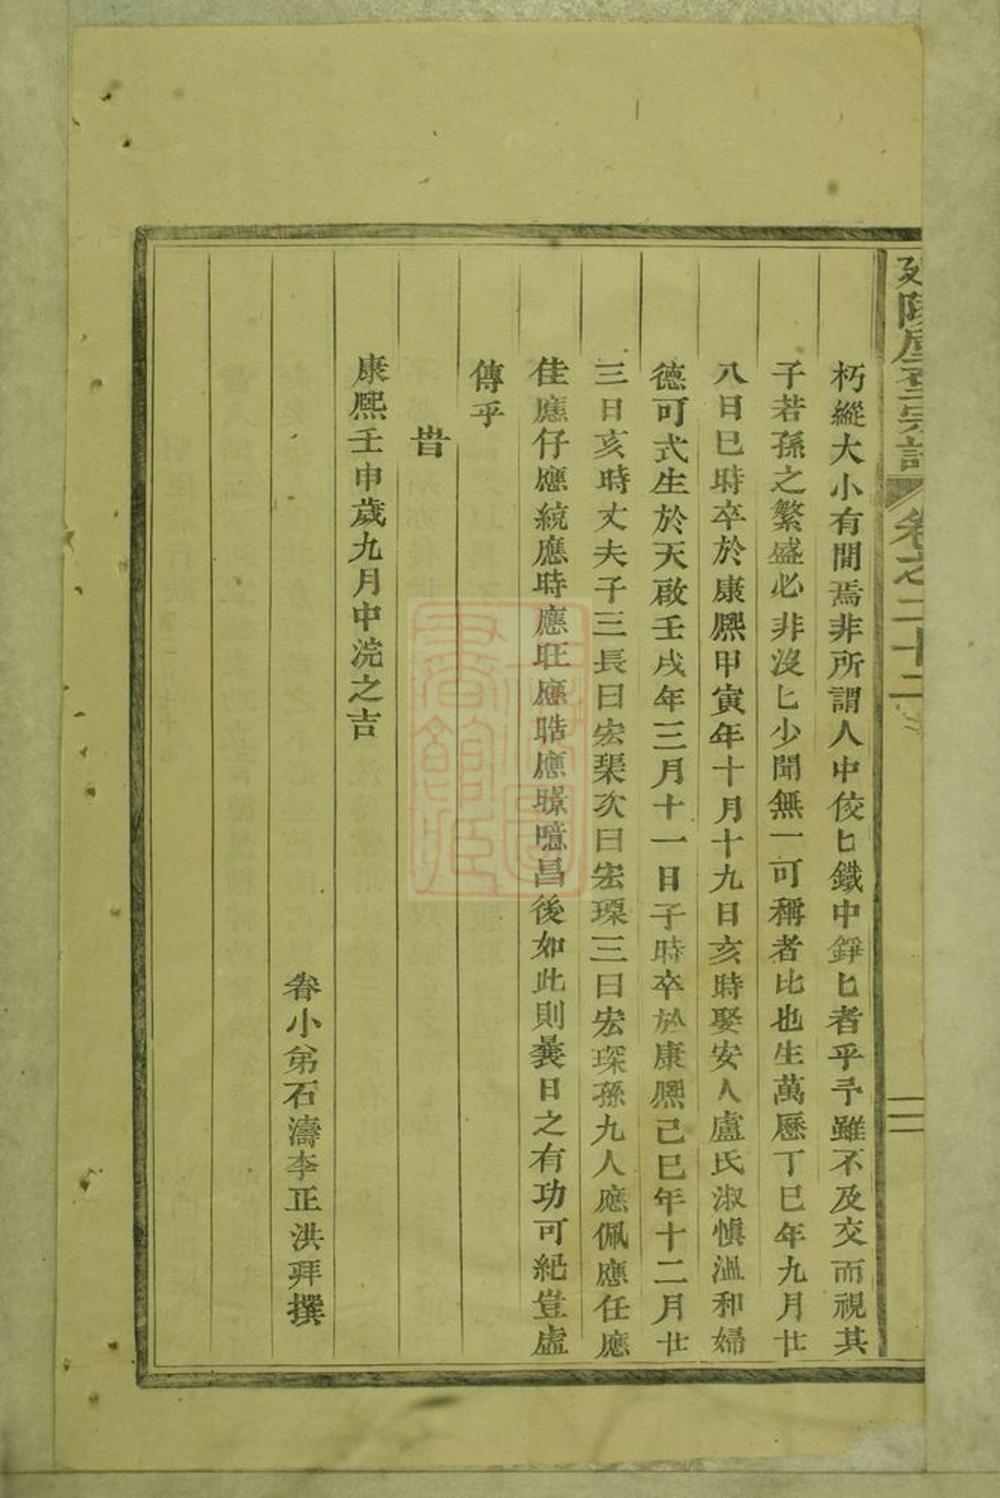 卷之二十二
朽縱大小有間焉非所謂人中佼匕鐵中錚匕者乎予雖不及交而視其
子若孫之繁盛必非沒匕少聞無一可稱者比也生萬厯丁巳年九月廿
八日巳時卒於康熙甲寅年十月十九日亥時娶安人盧氏淑慎溫和婦
德可式生於天啟壬戌年三月十一日子時卒於康熙己巳年十二月廿
三日亥時丈夫子三長曰宏琹次曰宏瑮三曰宏琛孫九人應佩應任應
佳應仔應統應時應旺應晧應璟噫昌後如此則曩日之有功可紀豈虛
傳乎
旹
康熙壬申歲九月中浣之吉
眷小弟石濤李正洪拜撰